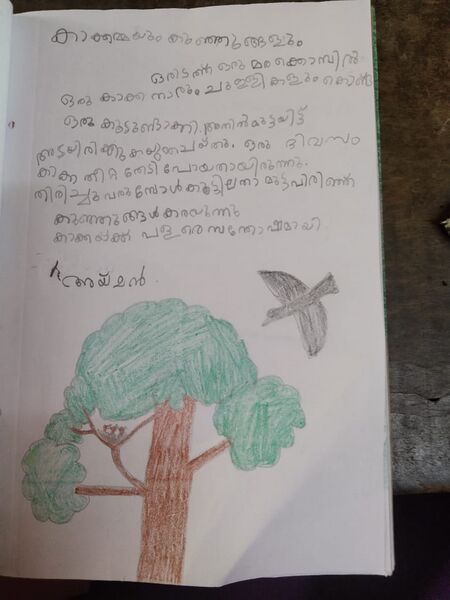 കാക്കമ്മയും കുഞ്ഞുങ്ങളും
ഒരിടത്ത് ഒരു മരക്കൊമ്പിൽ
ഒരു കാക്ക നാരും ചുള്ളികളും കൊണ്ട്
ഒരു കൂടുണ്ടാക്കി. അതിൽ മുട്ടയിട്ട്
അടയിരിക്കുകയുംചെയ്തു. ഒരു ദിവസം
കാക്ക തീറ്റ തേടി പോയതായിരുന്നു.
തിരിച്ചു വരുമ്പോൾ കൂട്ടിലതാ മുട്ടവിരിഞ്ഞ്
കുഞ്ഞുങ്ങൾ കരയുന്നു
കാക്കയ്ക്ക് വളരെ സന്തോഷമായി
അയ്ലൻ.